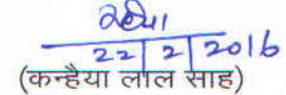 22 2 2016
(कन्हैया लाल साह)